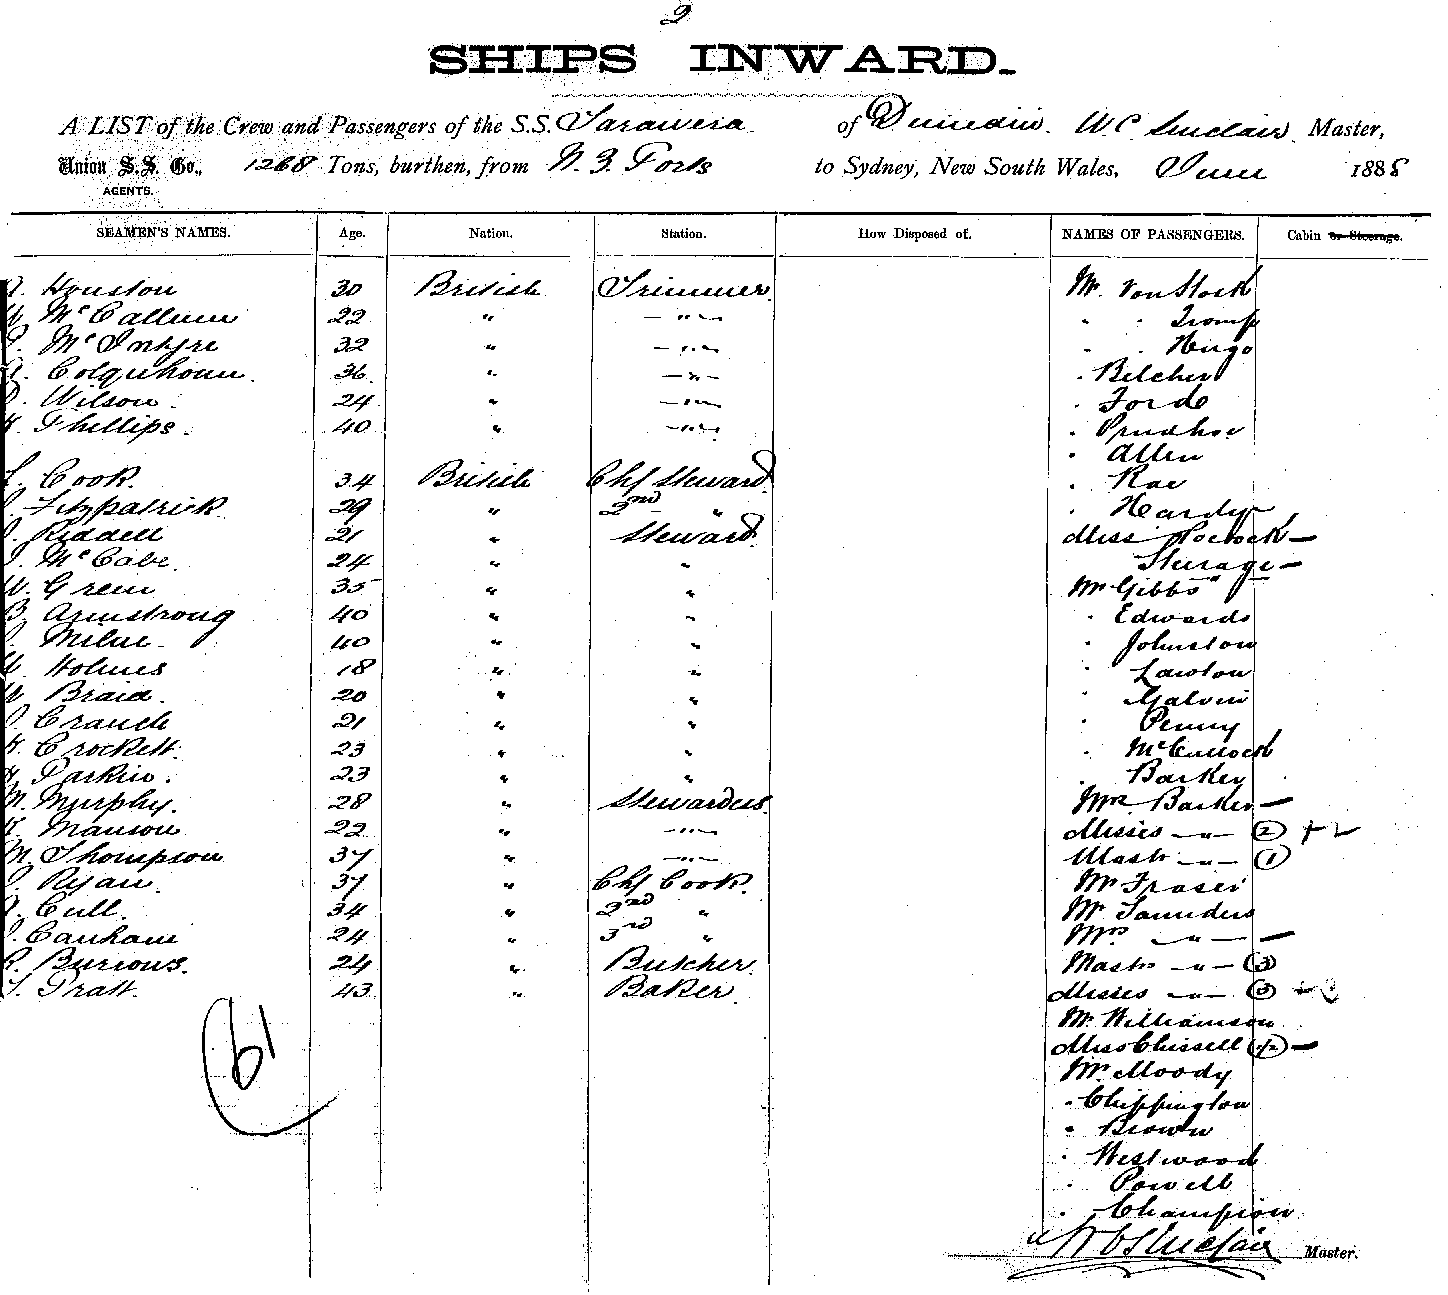 2
SHIPS INWARD.
A LIST of the Crew and Passengers of the S.S. Tarawera of Dunedin. W C Sinclair Master,
Union S.S. Co., 1268 Tons, burthen, from N. Z. Ports to Sydney, New South Wales, 1888
AGENTS.
SEAMEN'S NAMES. Age. Nation. Station. How Disposed of. NAMES OF PASSENGERS. Cabin or Steerage.
Houston 30 British Trimmer Mr. Von Stock
McCallum 22 " — " — " " Tromp
McIntyre 32 " — " — " " Hugo
Colquhoun 36 " — " — " Belcher
Wilson 24 " — " — " Forde
Phillips 40 " — " — " Prudhoe
" Allen
Cook 34 British Chf Steward " Rae
Fitzpatrick 29 " 2nd " " Hardy
Riddell 21 " Steward Miss Pocock —
McCabe 24 " " Steerage —
W. Green 35 " " Mr Gibbs
B. Armstrong 40 " " " Edwards
Milne 40 " " " Johnston
Holmes 18 " " " Lawton
W Braid 20 " " " Galvin
Crauch 21 " " " Penny
Crockett 23 " " " McCullock
Parkin 23 " " " Barkey
M. Murphy 28 " Stewardess Mrs Barkey —
Manson 22 " — " — Misses — " — (2) + 2
M. Thompson 37 " — " — Mastr — " — (1)
Ryan 37 " Chf Cook Mr Fraser
Cull 34 " 2nd " Mr Saunders
Canham 24 " 3rd " Mrs — " — —
R. Burrows 24 " Butcher Mastr — " — (3)
Pratt 43 " Baker Misses — " — (3)
Mr. Williamson
Miss Chissell (1/2) —
61
Mr Moody
" Chippington
" Brown
" Westwood
" Powell
" Champion
W C Sinclair Master.